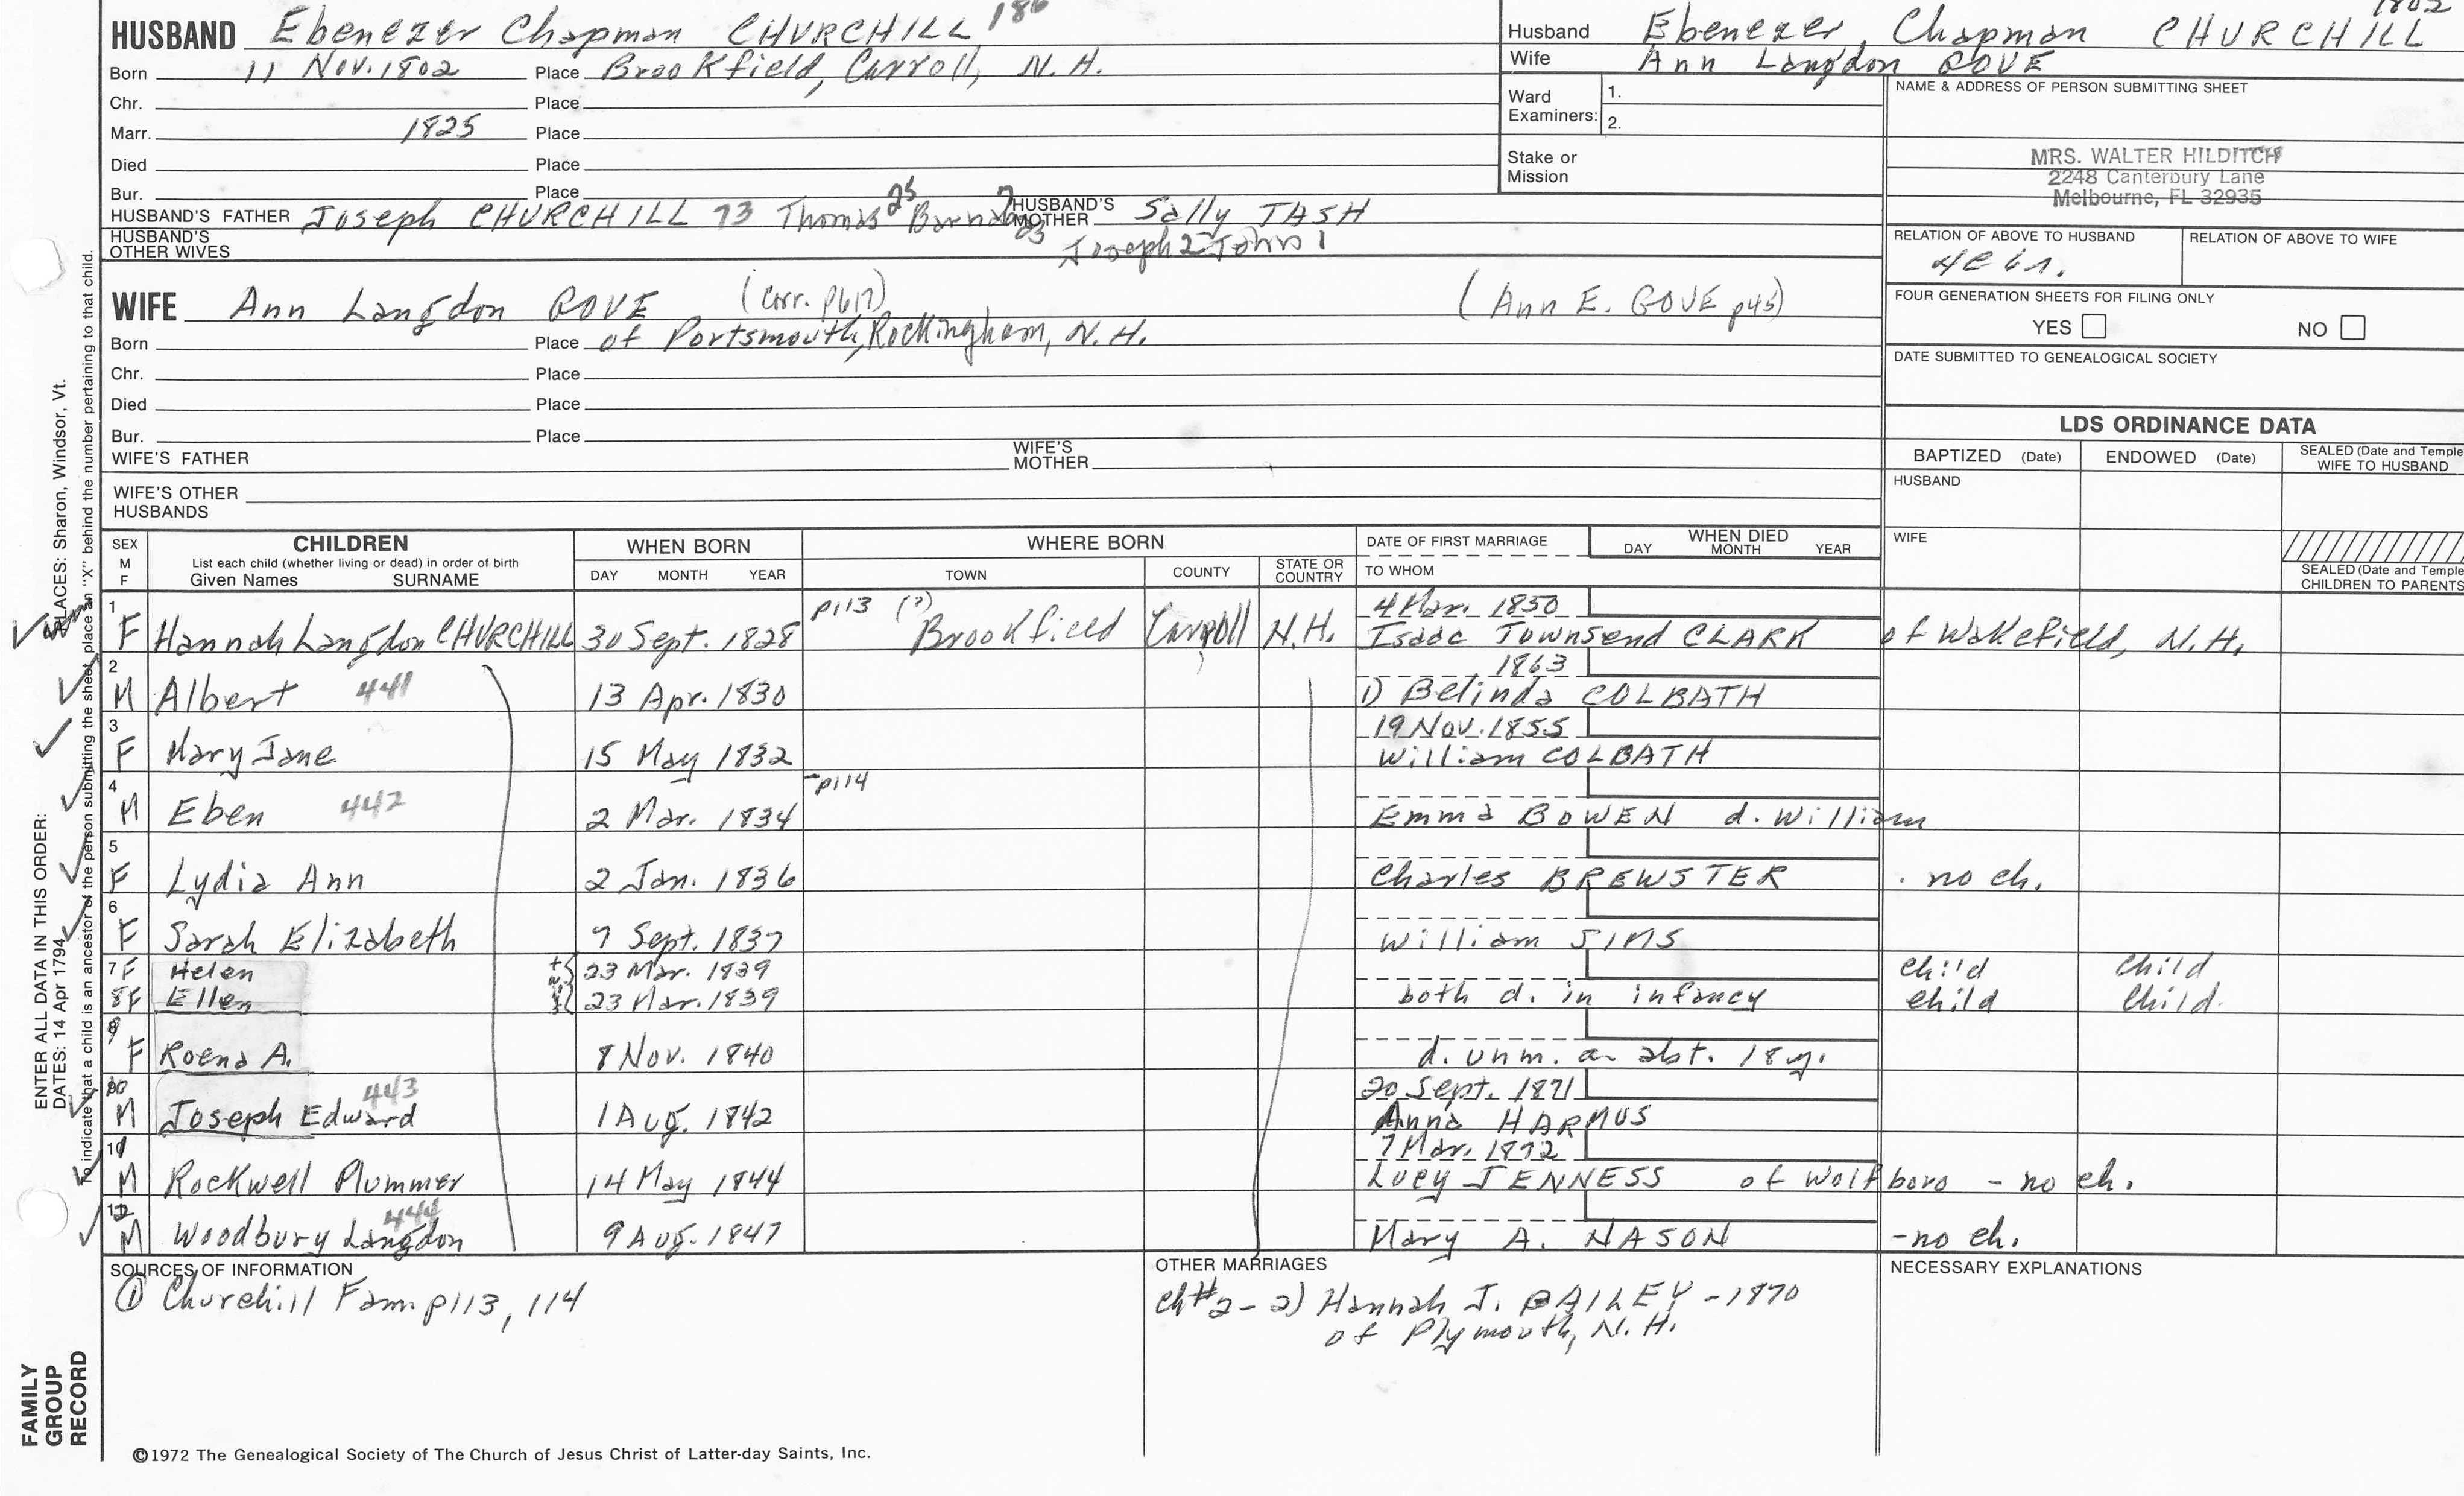 HUSBAND Ebenezer Chapman CHURCHILL 186
Born 11 Nov. 1802 Place Brookfield, Carroll, N.H.
Chr. Place
Marr. 1825 Place
Died Place
Bur. Place
HUSBAND'S FATHER Joseph CHURCHILL 73 Thomas 25 HUSBAND'S MOTHER Sally TASH
HUSBAND'S OTHER WIVES Joseph 2 John 1
Husband Ebenezer Chapman CHURCHILL 1802
Wife Ann Langdon ROVE
Ward Examiners: 1.
2.
Stake or Mission
NAME & ADDRESS OF PERSON SUBMITTING SHEET
MRS. WALTER HILDITCH
2248 Canterbury Lane
Melbourne, FL 32935
RELATION OF ABOVE TO HUSBAND RELATION OF ABOVE TO WIFE
FOUR GENERATION SHEETS FOR FILING ONLY
YES NO
DATE SUBMITTED TO GENEALOGICAL SOCIETY
WIFE Ann Langdon ROVE (corr. p617) (Ann E. GOVE p45)
Born Place of Portsmouth, Rockingham, N.H.
Chr. Place
Died Place
Bur. Place
WIFE'S FATHER WIFE'S MOTHER
WIFE'S OTHER HUSBANDS
LDS ORDINANCE DATA
BAPTIZED (Date) ENDOWED (Date) SEALED (Date and Temple WIFE TO HUSBAND
HUSBAND
WIFE
SEALED (Date and Temple CHILDREN TO PARENTS
SEX M F CHILDREN WHEN BORN WHERE BORN DATE OF FIRST MARRIAGE WHEN DIED
List each child (whether living or dead) in order of birth
Given Names SURNAME DAY MONTH YEAR TOWN COUNTY STATE OR COUNTRY TO WHOM DAY MONTH YEAR
1 p113 (?) 4 Mar. 1850
F Hannah Langdon CHURCHILL 30 Sept. 1828 Brookfield Carroll N.H. Isaac Townsend CLARK of Wakefield, N.H.
2 1863
M Albert 441 13 Apr. 1830 1) Belinda COLBATH
3 19 Nov. 1855
F Mary Jane 15 May 1832 William COLBATH
4 p114
M Eben 442 2 Mar. 1834 Emma BOWEN d. William
5
F Lydia Ann 2 Jan. 1836 Charles BREWSTER no ch.
6
F Sarah Elizabeth 7 Sept. 1837 William SIMS
7 F Helen twins 23 Mar. 1839 child child
8 F Ellen 23 Mar. 1839 both d. in infancy child child
9
F Roena A. 8 Nov. 1840 d. unm. a abt. 18 y.
10 20 Sept. 1871
M Joseph Edward 443 1 Aug. 1842 Anna HARMUS
11 7 Mar. 1872
M Rockwell Plummer 14 May 1844 Lucy JENNESS of Wolfboro - no ch.
12
M Woodbury Langdon 444 9 Aug. 1847 Mary A. NASON - no ch.
SOURCES OF INFORMATION
① Churchill Fam. p113, 114
OTHER MARRIAGES
ch #2 - 2) Hannah J. BAILEY - 1870
of Plymouth, N.H.
NECESSARY EXPLANATIONS
©1972 The Genealogical Society of The Church of Jesus Christ of Latter-day Saints, Inc.
FAMILY
GROUP
RECORD
ENTER ALL DATA IN THIS ORDER:
DATES: 14 Apr 1794
PLACES: Sharon, Windsor, Vt.
To indicate that a child is an ancestor of the person submitting the sheet, place an "X" behind the number pertaining to that child.